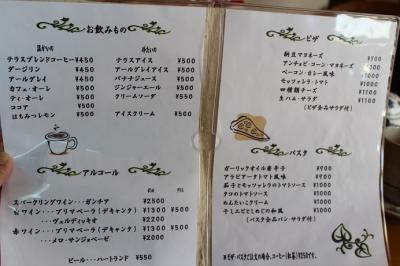 お飲みもの
温かい物
テラスブレンドコーヒー ¥450
ダージリン ¥450
アールグレイ ¥450
カフェ・オーレ ¥500
ティ・オーレ ¥500
ココア ¥500
はちみつレモン ¥500
冷たい物
テラスアイス ¥500
アールグレイアイス ¥500
バナナジュース ¥500
ジンジャーエール ¥500
クリームソーダ ¥550
アイスクリーム ¥500
アルコール
スパークリングワイン・・・ガンチア ¥2500
白ワイン・・・プリマベーラ(デキャンタ) ¥1300 ¥500
・・・ヴェルディッキオ ¥2200
赤ワイン・・・プリマベーラ(デキャンタ) ¥1300 ¥500
・・・メロー・サンジョベーゼ ¥2200
ビール・・・ハートランド ¥550
ピザ
納豆マヨネーズ ¥900
アンチョビ・コーン・マヨネーズ ¥1000
ベーコン・カレー風味 ¥1000
モッツァレラ・トマト ¥1000
四種類チーズ ¥1100
生ハム・サラダ ¥1100
(ピザ全品サラダ付)
パスタ
ガーリックオイル唐辛子 ¥900
アラビアータトマト風味 ¥900
茄子とモッツァレラのトマトソース ¥1000
タコのトマトソース ¥1000
めんたいこクリーム ¥1000
干しエビときのこの和風 ¥1000
(パスタ全品パン・サラダ付)
※ピザ・パスタご注文の場合、コーヒー(紅茶)¥250です。